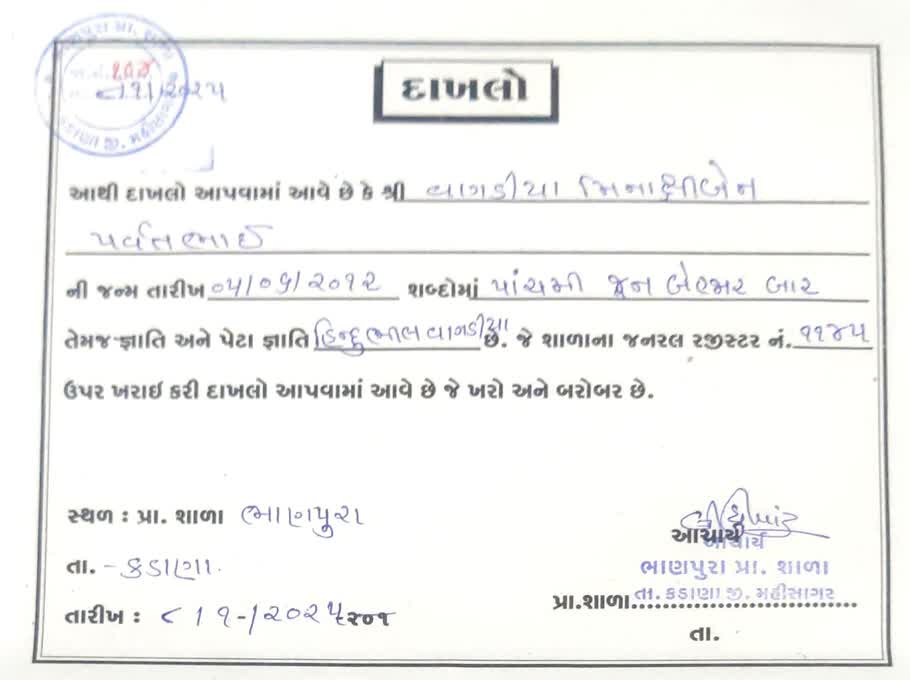 ણપુરા પ્રા. શાળા
જા.નં. ૧૦૪
તા. ૮/૧/૨૦૨૫
કડાણા જી. મહીસાગર
દાખલો
આથી દાખલો આપવામાં આવે છે કે શ્રી વાગડીયા મિનાક્ષીબેન
પર્વતભાઈ
ની જન્મ તારીખ ૦૫/૦૬/૨૦૧૨ શબ્દોમાં પાંચમી જૂન બેહજાર બાર
તેમજ જ્ઞાતિ અને પેટા જ્ઞાતિ હિન્દુ ભીલ વાગડીયા છે. જે શાળાના જનરલ રજીસ્ટર નં. ૧૧૪૫
ઉપર ખરાઈ કરી દાખલો આપવામાં આવે છે જે ખરો અને બરોબર છે.
સ્થળ : પ્રા. શાળા ભાણપુરા
આચાર્ય
આચાર્ય
તા. - કડાણા.
ભાણપુરા પ્રા. શાળા
પ્રા.શાળા. તા. કડાણા જી. મહીસાગર
તારીખ : ૮/૧/૨૦૨૫ ૨૦૧
તા.